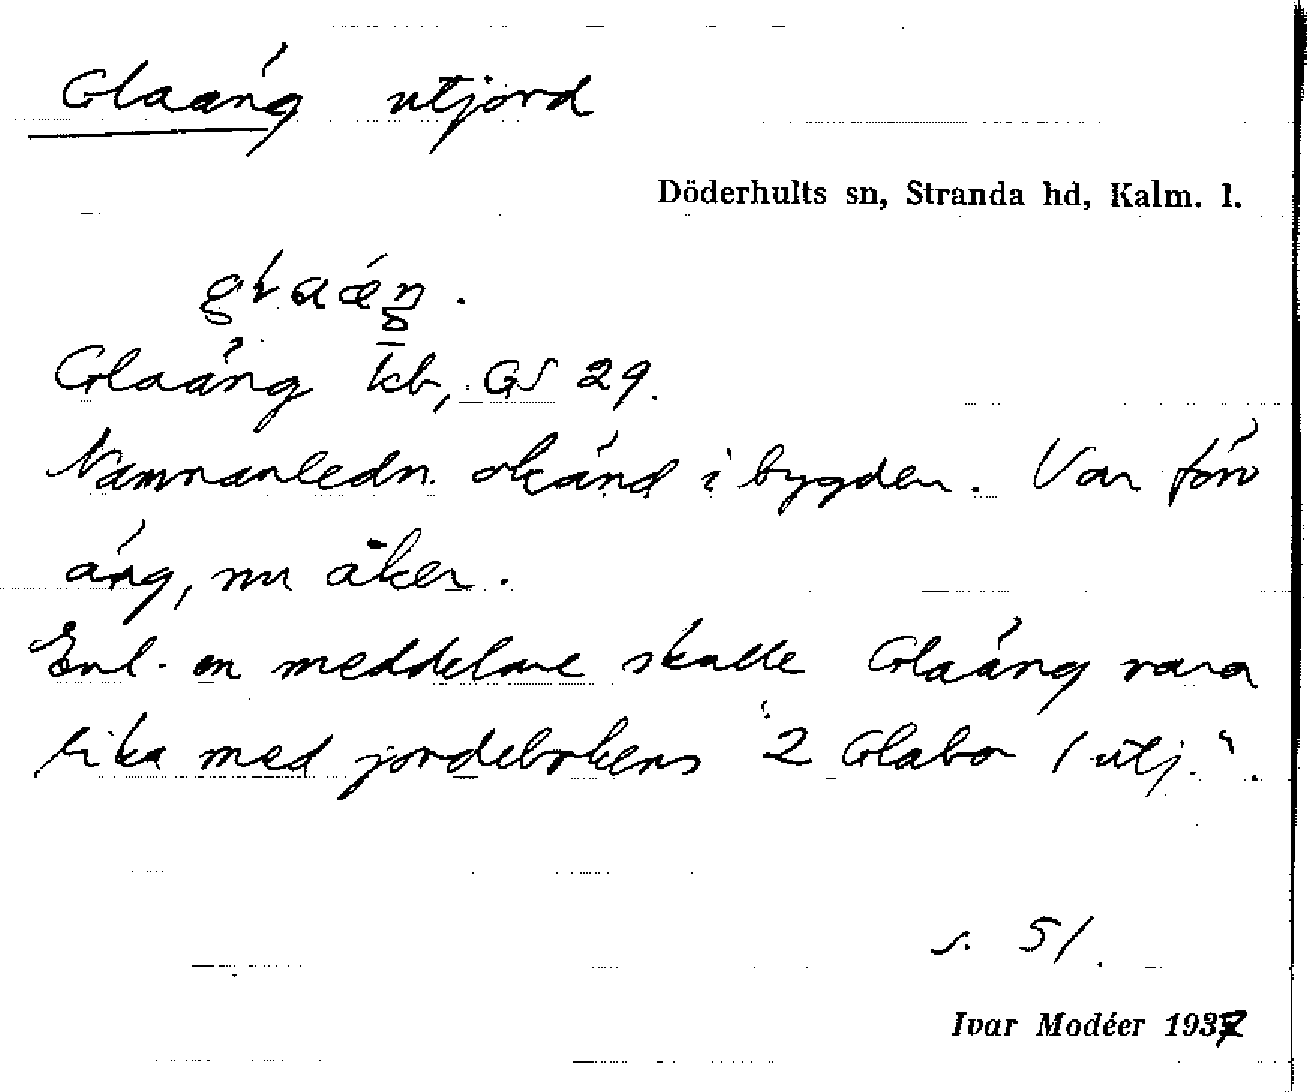 Glaäng utjord
Döderhults sn, Stranda hd, Kalm. l.
Glaäng kb, GS 29.
Namnanledn. okänd i bygden. Var förr
äng, nu åker.
Enl. en meddelare skulle Glaäng vara
lika med jordebokens "2 Glabo 1 utj.".
s. 51.
Ivar Modéer 1937